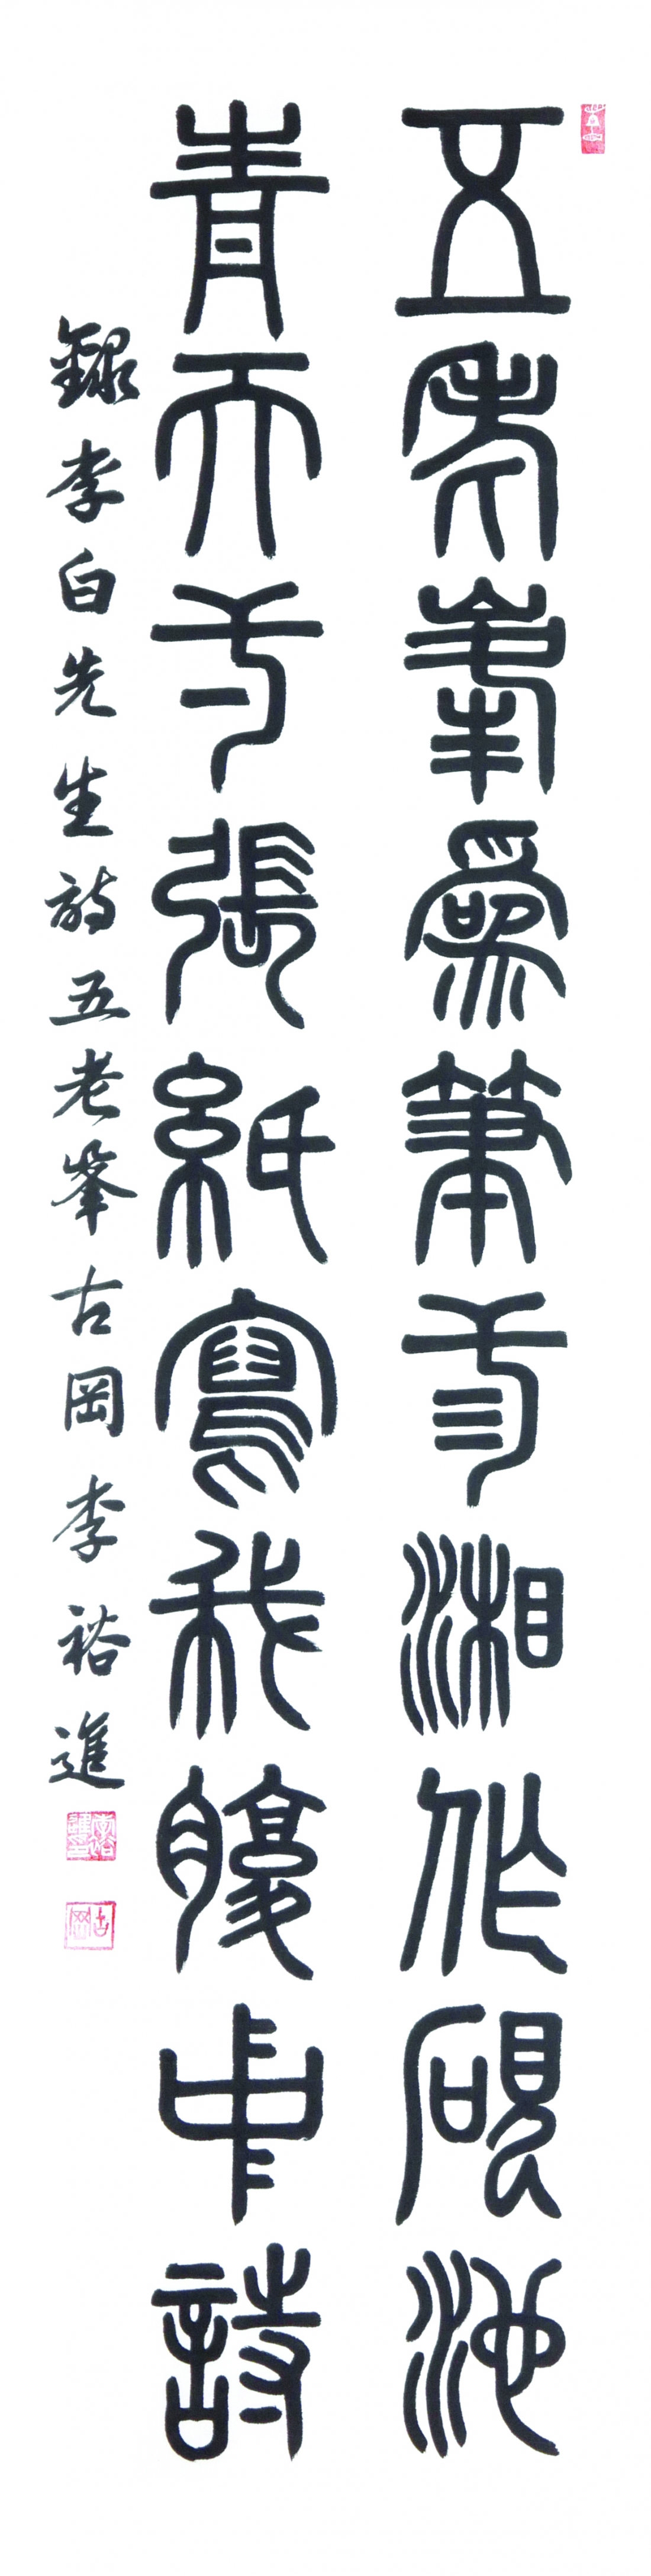 五老峯爲筆弎湘作硯池
青天弌張紙寫我腹中詩
錄李白先生詩五老峯古岡李裕進
古岡